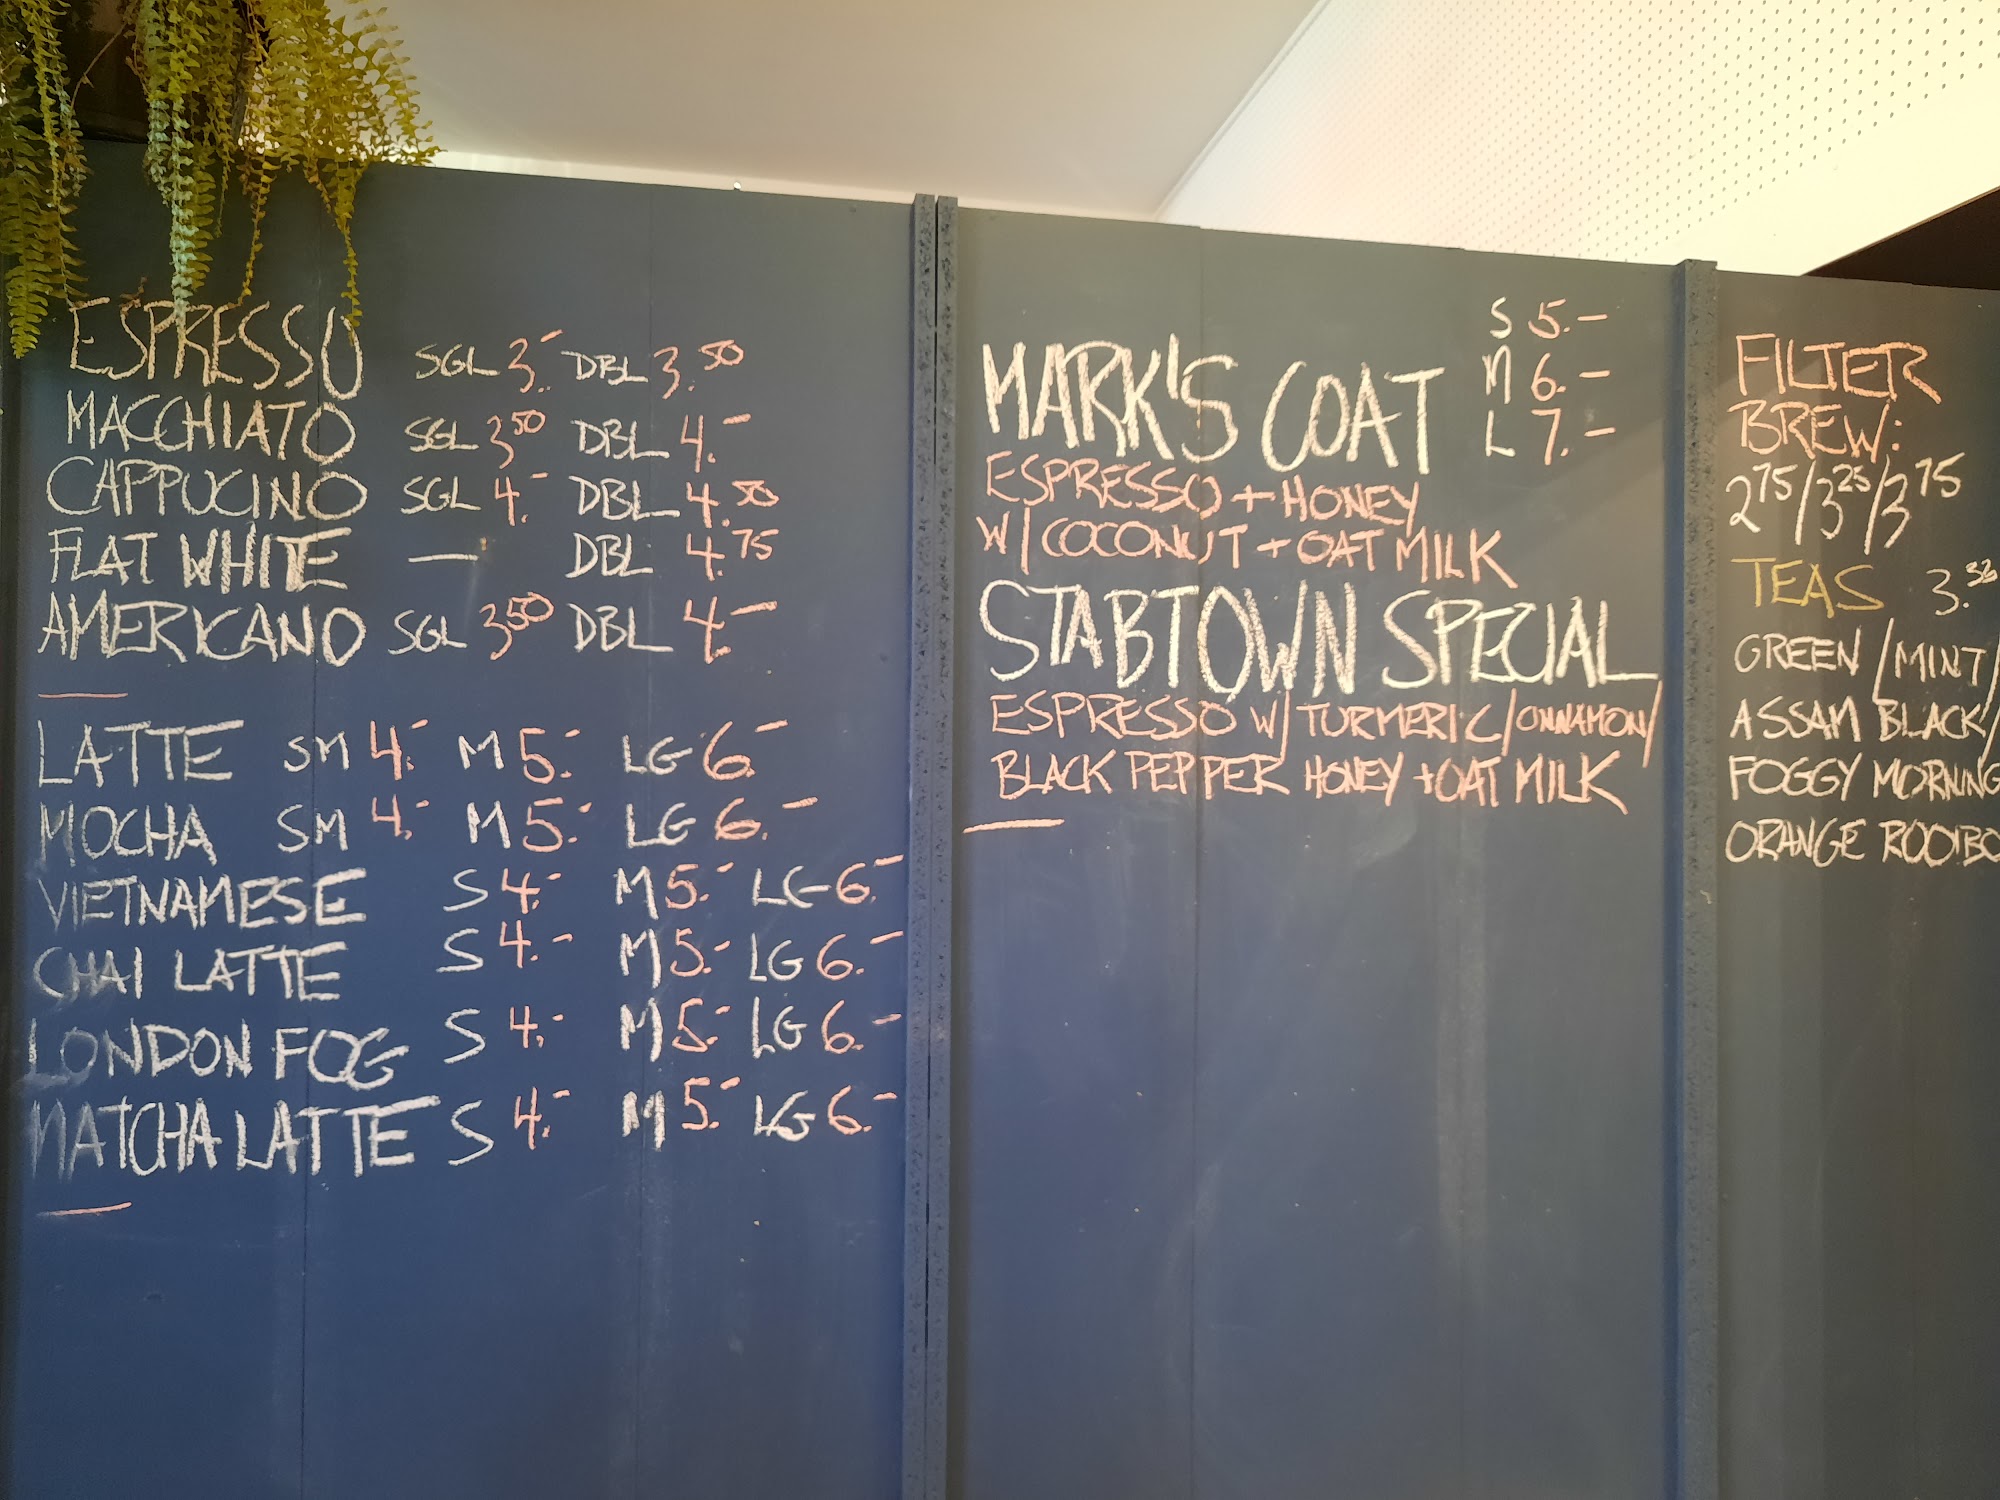 ESPRESSO SGL 3.- DBL 3.50
MACCHIATO SGL 3 50 DBL 4.-
CAPPUCINO SGL 4.- DBL 4.50
FLAT WHITE — DBL 4.75
AMERICANO SGL 3 50 DBL 4.-
LATTE SM 4.- M 5.- LG 6.-
MOCHA SM 4.- M 5.- LG 6.-
VIETNAMESE S 4.- M 5.- LG 6.-
CHAI LATTE S 4.- M 5.- LG 6.-
LONDON FOG S 4.- M 5.- LG 6.-
MATCHA LATTE S 4.- M 5.- LG 6.-
MARK'S COAT
S 5.-
M 6.-
L 7.-
ESPRESSO + HONEY
W/ COCONUT + OAT MILK
STABTOWN SPECIAL
ESPRESSO W/ TURMERIC/CINNAMON/
BLACK PEPPER HONEY + OAT MILK
FILTER
BREW:
2 75/3 25/3 75
TEAS 3.
GREEN / MINT/
ASSAM BLACK/
FOGGY MORNING
ORANGE ROOIBO